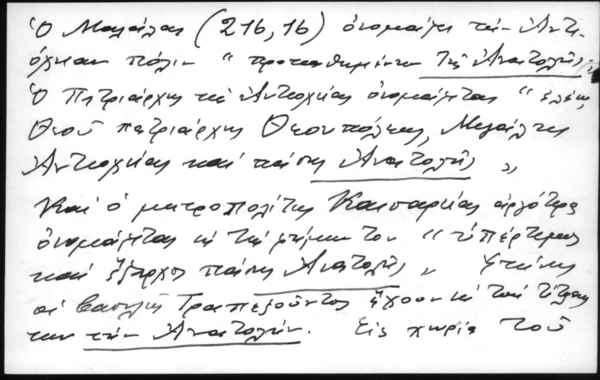 Ὁ Μαλάλας (216, 16) ὀνομάζει τὴν Ἀντι-
όχειαν πόλιν " προκαθημένην τῆς Ἀνατολῆς "
Ὁ Πατριάρχης τῆς Ἀντιοχείας ὀνομάζεται " ἐλέῳ
Θεοῦ πατριάρχης Θεουπόλεως, Μεγάλης
Ἀντιοχείας καὶ πάσης Ἀνατολῆς "
Καὶ ὁ μητροπολίτης Καισαρείας ἀργότερα
ὀνομάζεται εἰς τὴν φήμην του " ὑπέρτιμος
καὶ ἔξαρχος πάσης Ἀνατολῆς "
οἱ βασιλεῖς Τραπεζοῦντος ἔχουν εἰς τοὺς τίτλους
των τὴν Ἀνατολήν. Εἰς χωρία τοῦ